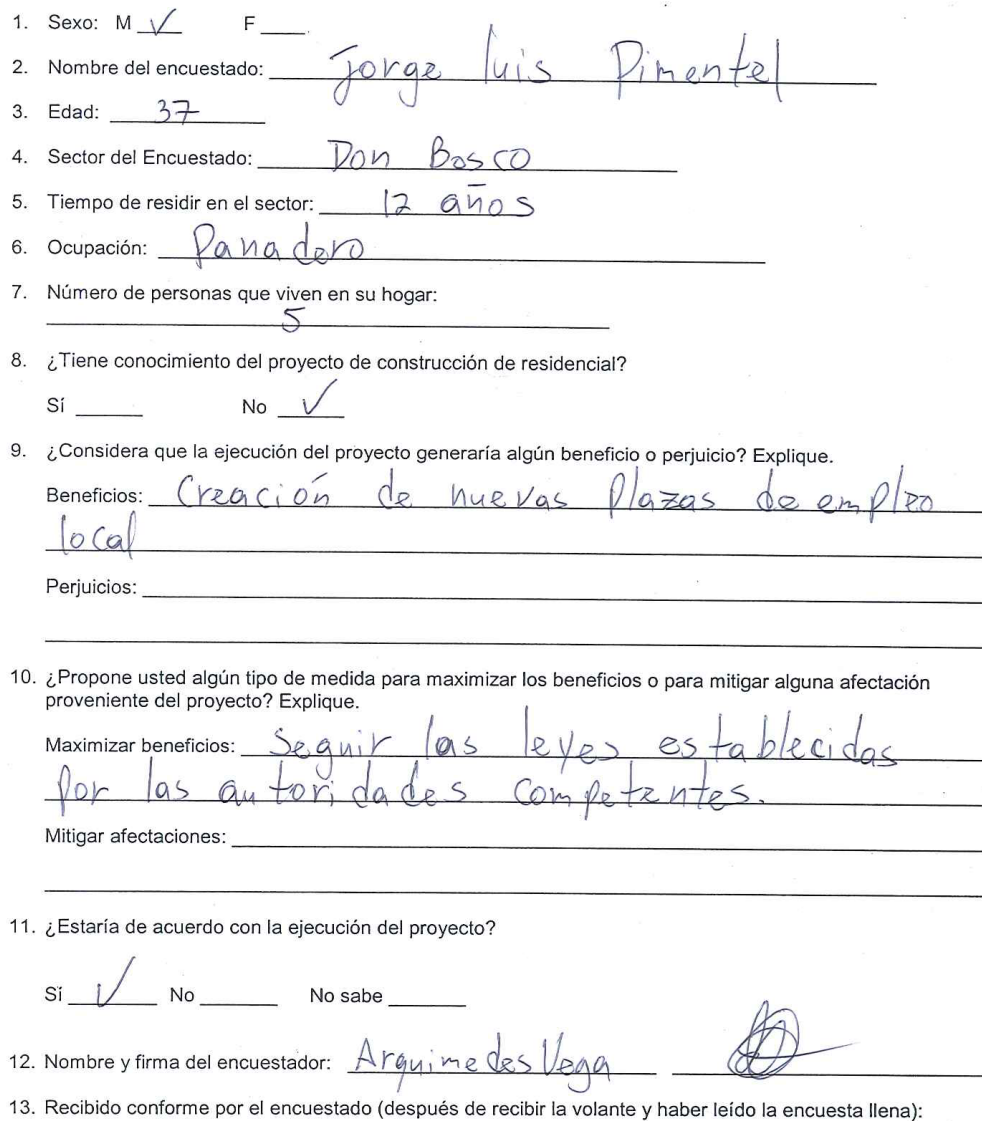 1. Sexo: M ✓ F
2. Nombre del encuestado: Jorge luis Pimentel
3. Edad: 37
4. Sector del Encuestado: Don Bosco
5. Tiempo de residir en el sector: 12 años
6. Ocupación: Panadero
7. Número de personas que viven en su hogar:
5
8. ¿Tiene conocimiento del proyecto de construcción de residencial?
Sí No ✓
9. ¿Considera que la ejecución del proyecto generaría algún beneficio o perjuicio? Explique.
Beneficios: Creación de nuevas Plazas de empleo
local
Perjuicios:
10. ¿Propone usted algún tipo de medida para maximizar los beneficios o para mitigar alguna afectación
proveniente del proyecto? Explique.
Maximizar beneficios: Seguir las leyes establecidas
por las autoridades competentes.
Mitigar afectaciones:
11. ¿Estaría de acuerdo con la ejecución del proyecto?
Sí ✓ No No sabe
12. Nombre y firma del encuestador: Arquimedes Vega
13. Recibido conforme por el encuestado (después de recibir la volante y haber leído la encuesta llena):